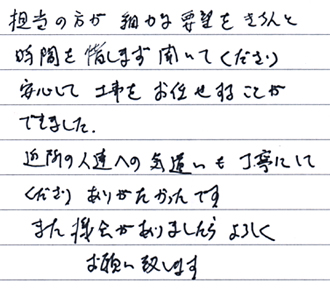 担当の方が 細かな要望をきちんと
時間を惜します聞いてくださり
安心して 工事をお任せすることが
できました.
近所の人達への気遣いも丁寧にして
くださり ありがたかったです
また機会がありましたら よろしく
お願い致します